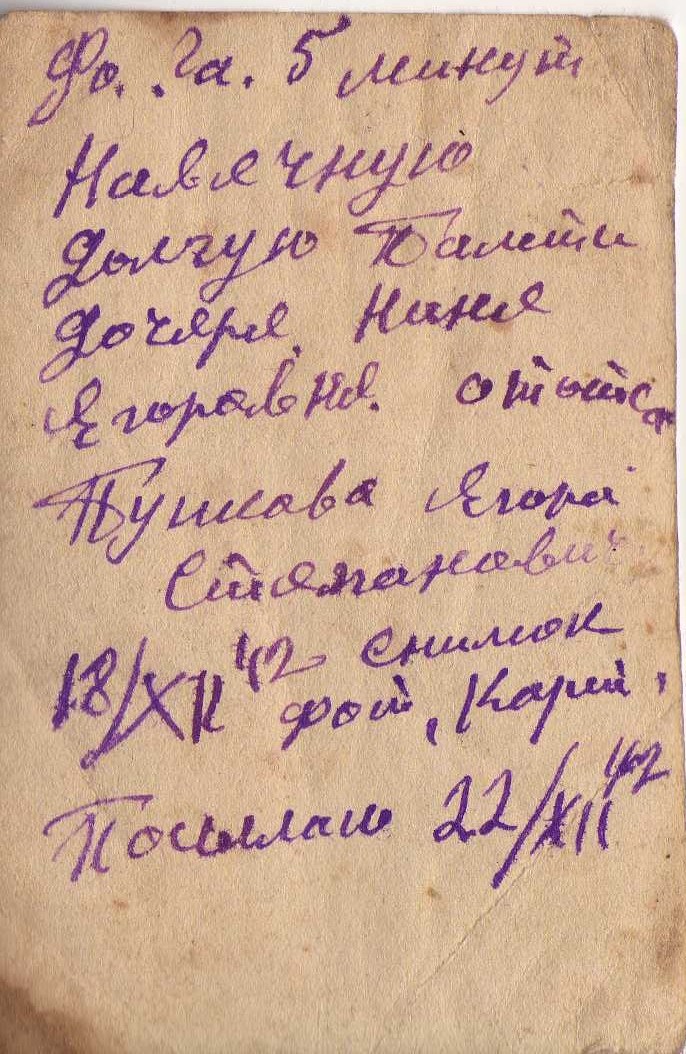 Фо. га. 5 минут
Навячную
Долгую Памти
Дочяря. Нине
Ягоравня. отытса
Пушкова Ягора
Стяпанович
18/XII 42 снимок
фот, Карт.
Посылаю 22/XII 42